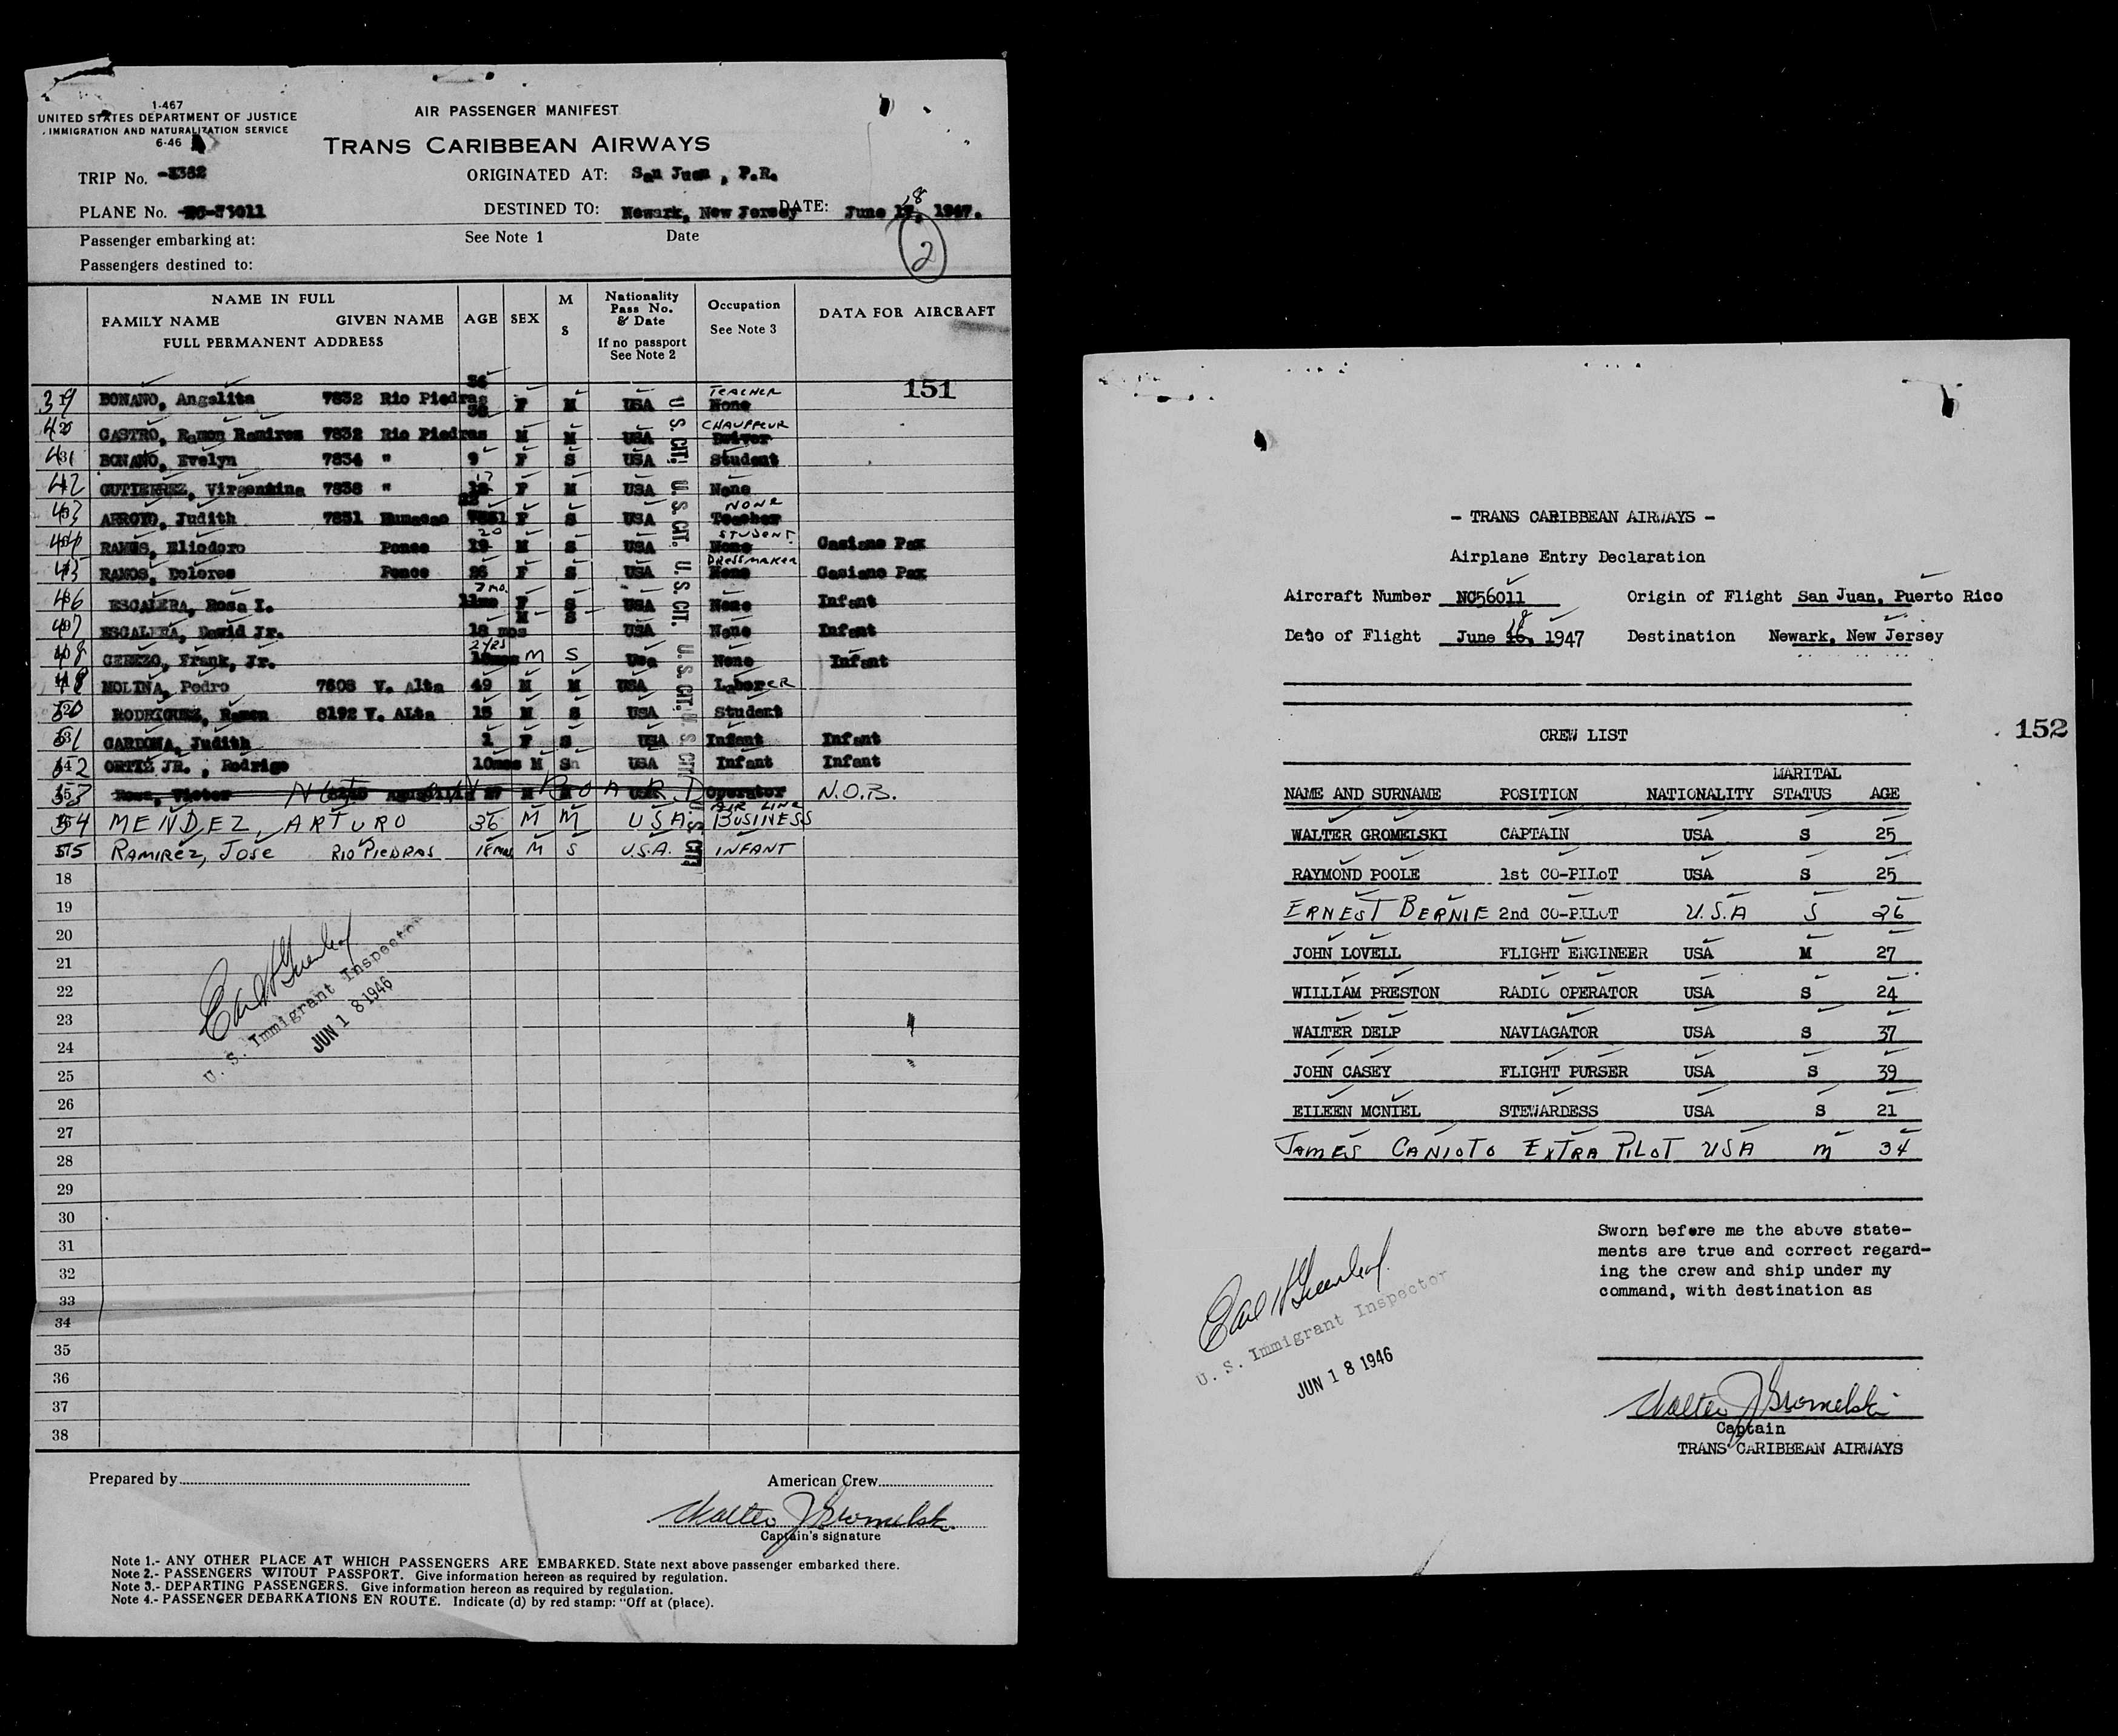 1-467
UNITED STATES DEPARTMENT OF JUSTICE
IMMIGRATION AND NATURALIZATION SERVICE
6-46
AIR PASSENGER MANIFEST
TRANS CARIBBEAN AIRWAYS
TRIP No.
ORIGINATED AT: San Juan, P.R.
PLANE No.
DESTINED TO: Newark, New Jersey DATE: June 18, 1947.
Passenger embarking at: See Note 1 Date
Passengers destined to:
2
NAME IN FULL
FAMILY NAME GIVEN NAME
FULL PERMANENT ADDRESS
AGE SEX M S
Nationality Pass No. & Date If no passport See Note 2
Occupation See Note 3
DATA FOR AIRCRAFT
151
39 BONANO, Angelita 7832 Rio Piedras 36 F M USA TEACHER None
40 CASTRO, Ramon Ramirez 7832 Rio Piedras M M USA CHAUFFEUR Driver
41 BONANO, Evelyn 7834 " 9 F S USA Student
42 GUTIERREZ, 7838 " 17 F M USA None
43 ARROYO, Judith 7831 Humacao F S USA NONE Teacher
44 RAMOS, Eliodoro Ponce 20 19 M S USA STUDENT None Casiano Pax
45 RAMOS, Dolores Ponce 26 F S USA DRESSMAKER None Casiano Pax
46 ESCALERA, Rosa I. 7 mo. 11mo F S USA None Infant
47 ESCALERA, David Jr. 18 mos M S USA None Infant
48 CEREZO, Frank, Jr. 2 yrs M S Usa None Infant
MOLINA, Pedro 7603 V. Alta 49 M M USA LaborER
50 RODRIGUEZ, Ramon 8192 V. Alta 15 M S USA Student
51 CARDONA, Judith 1 F S USA Infant Infant
52 ORTIZ JR., Rodrigo 10mos M S USA Infant Infant
53 Rosa, Victor NOT ON BOARD Operator N.O.B.
54 MENDEZ, ARTURO 36 M M USA AIR LINE BUSINESS
55 RAMIREZ, JOSE RIO PIEDRAS 18 mos M S U.S.A. INFANT
U. S. CIT.
U. S. CIT.
U. S. CIT.
U. S. CIT.
18
19
20
21
22
23
24
25
26
27
28
29
30
31
32
33
34
35
36
37
38
U. S. Immigrant Inspector
JUN 18 1946
Prepared by
American Crew
Walter J Gromelski
Captain's signature
Note 1.- ANY OTHER PLACE AT WHICH PASSENGERS ARE EMBARKED. State next above passenger embarked there.
Note 2.- PASSENGERS WITOUT PASSPORT. Give information hereon as required by regulation.
Note 3.- DEPARTING PASSENGERS. Give information hereon as required by regulation.
Note 4.- PASSENGER DEBARKATIONS EN ROUTE. Indicate (d) by red stamp: "Off at (place).
- TRANS CARIBBEAN AIRWAYS -
Airplane Entry Declaration
Aircraft Number NC56011 Origin of Flight San Juan, Puerto Rico
Date of Flight June 18, 1947 Destination Newark, New Jersey
152
CREW LIST
NAME AND SURNAME POSITION NATIONALITY MARITAL STATUS AGE
WALTER GROMELSKI CAPTAIN USA S 25
RAYMOND POOLE 1st CO-PILOT USA S 25
ERNEST BERNIE 2nd CO-PILOT U.S.A S 26
JOHN LOVELL FLIGHT ENGINEER USA M 27
WILLIAM PRESTON RADIO OPERATOR USA S 24
WALTER DELP NAVIAGATOR USA S 37
JOHN CASEY FLIGHT PURSER USA S 39
EILEEN MCNIEL STEWARDESS USA S 21
JAMES CANIOTO EXTRA PILOT USA M 34
Sworn before me the above state-
ments are true and correct regard-
ing the crew and ship under my
command, with destination as
U. S. Immigrant Inspector
JUN 18 1946
Walter J Gromelski
Captain
TRANS CARIBBEAN AIRWAYS